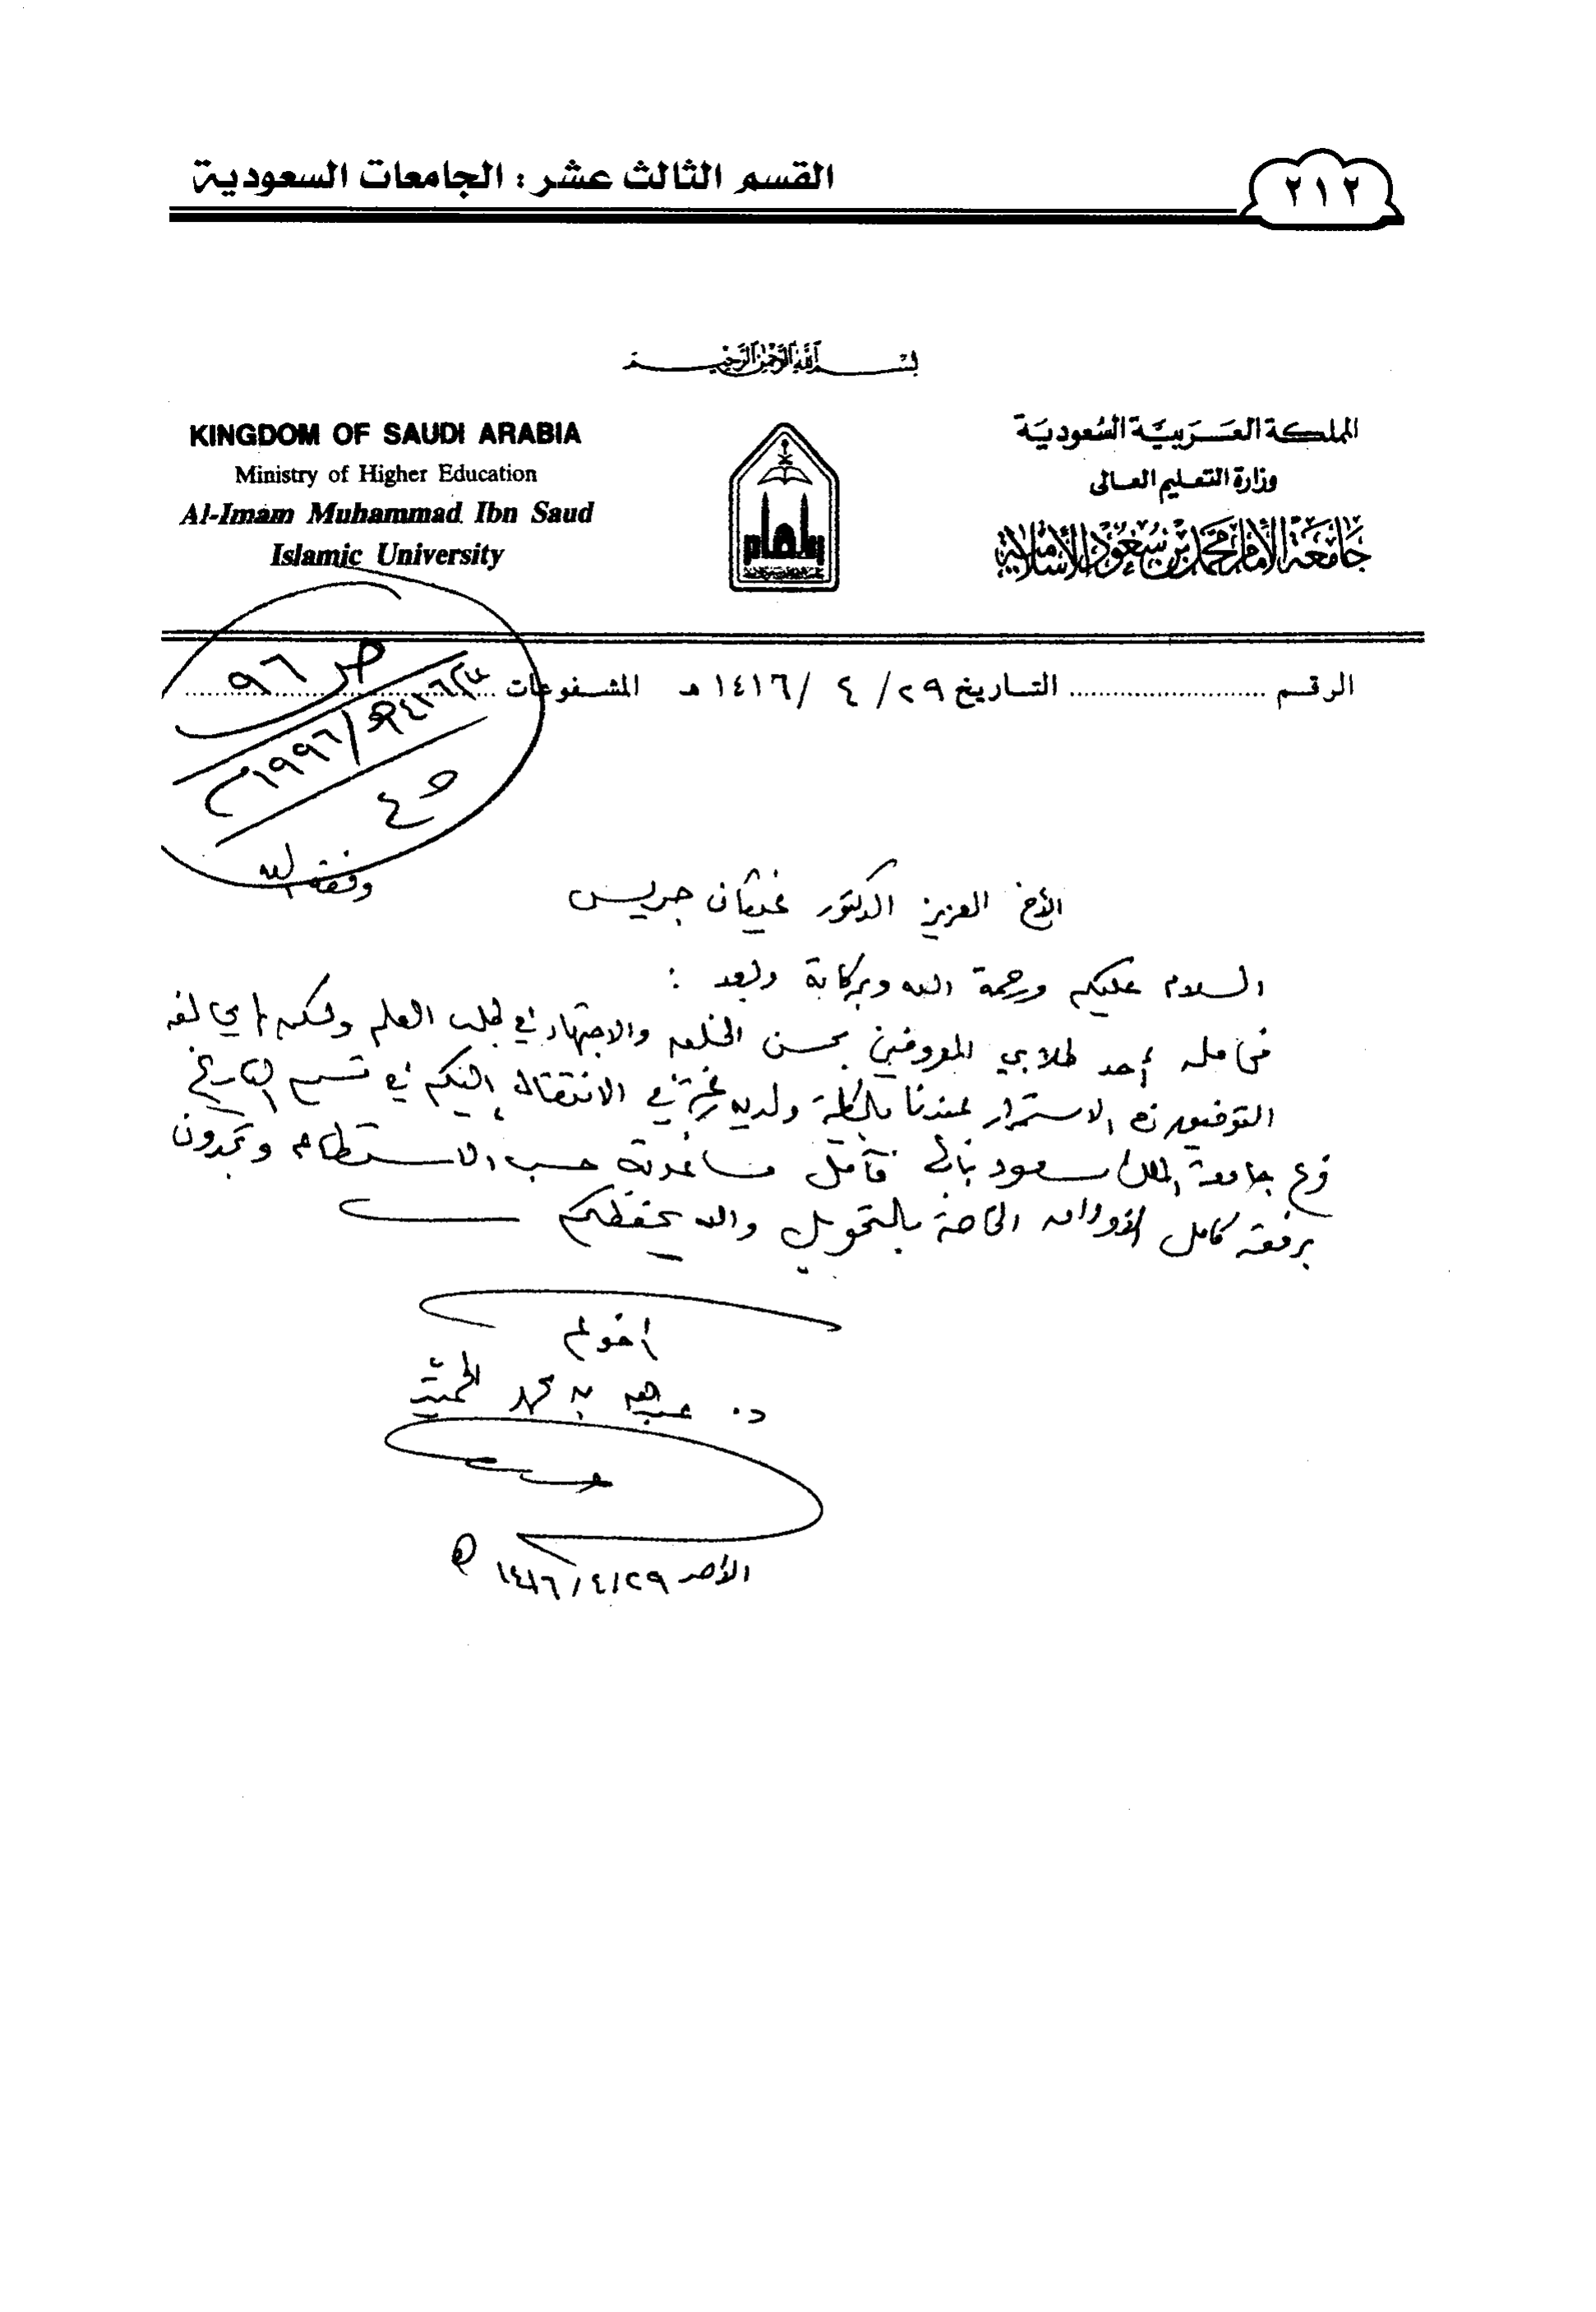 القسم الثالث عشر : الجامعات السعودية
٢١٢
بسم الله الرحمن الرحيم
المملكة العربية السعودية
وزارة التعليم العالى
جامعة الإمام محمد بن سعود الإسلامية
KINGDOM OF SAUDI ARABIA
Ministry of Higher Education
Al-Imam Muhammad Ibn Saud
Islamic University
الرقم ........................ التاريخ ٢٩/ ٤ /١٤١٦ هـ المشفوعات ........................
ص ٩٦
١٤١٦هـ/١٩٩٦م
الأخ العزيز الدكتور غيثان جريس وفقه الله
السلام عليكم ورحمة الله وبركاته وبعد :
فحامله أحد طلابي المعروفين بحسن الخلق والاجتهاد في طلب العلم ولكن لم يحالفه
التوفيق في الاستمرار عندنا بالكلية ولديه رغبة في الانتقال إليكم في قسم التاريخ
فرع جامعة الملك سعود بأبها فآمل مساعدته حسب الاستطاعه وتجدون
برفقه كامل الأوراق الخاصة بالتحويل والله يحفظكم
أخوكم
د. عبدالله بن محمد
الأحد ٢٩/٤/١٤١٦ هـ